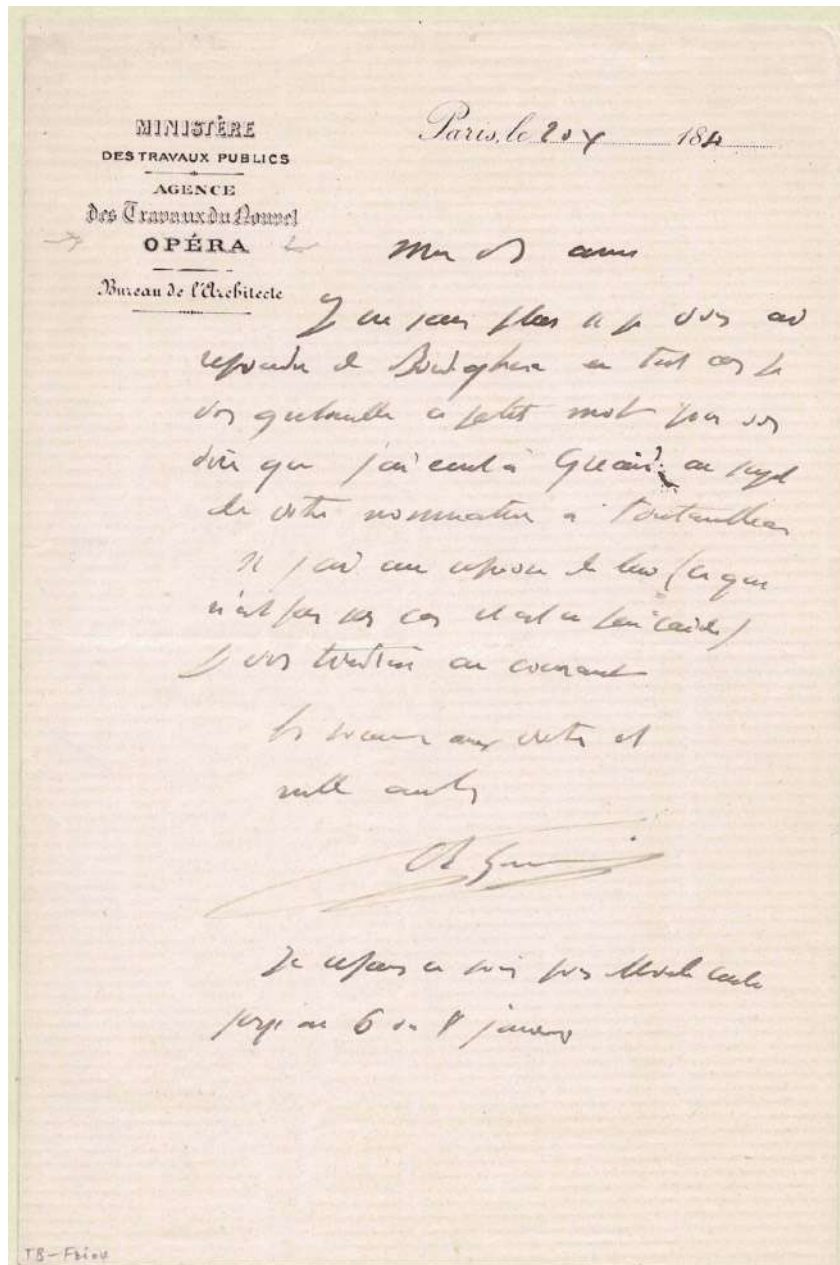 MINISTÈRE
DES TRAVAUX PUBLICS
AGENCE
des Travaux du Nouvel
OPÉRA
Bureau de l'Architecte
Paris, le 20 18
Mon ami
Je ne sais plus si je vous ai
répondu de Bordighera en tout cas je
vous gribouille ce petit mot pour vous
dire que j'ai écrit à Gréard au sujet
de votre nomination à Fontainebleau
si j'ai une réponse de lui (ce qui
n'est pas car il est un peu )
je vous tiendrai au courant
aux vôtres et
mille
Ch Garnier
Je repars ce soir pour Monte Carlo
jusqu'au 6 ou 8 janvier